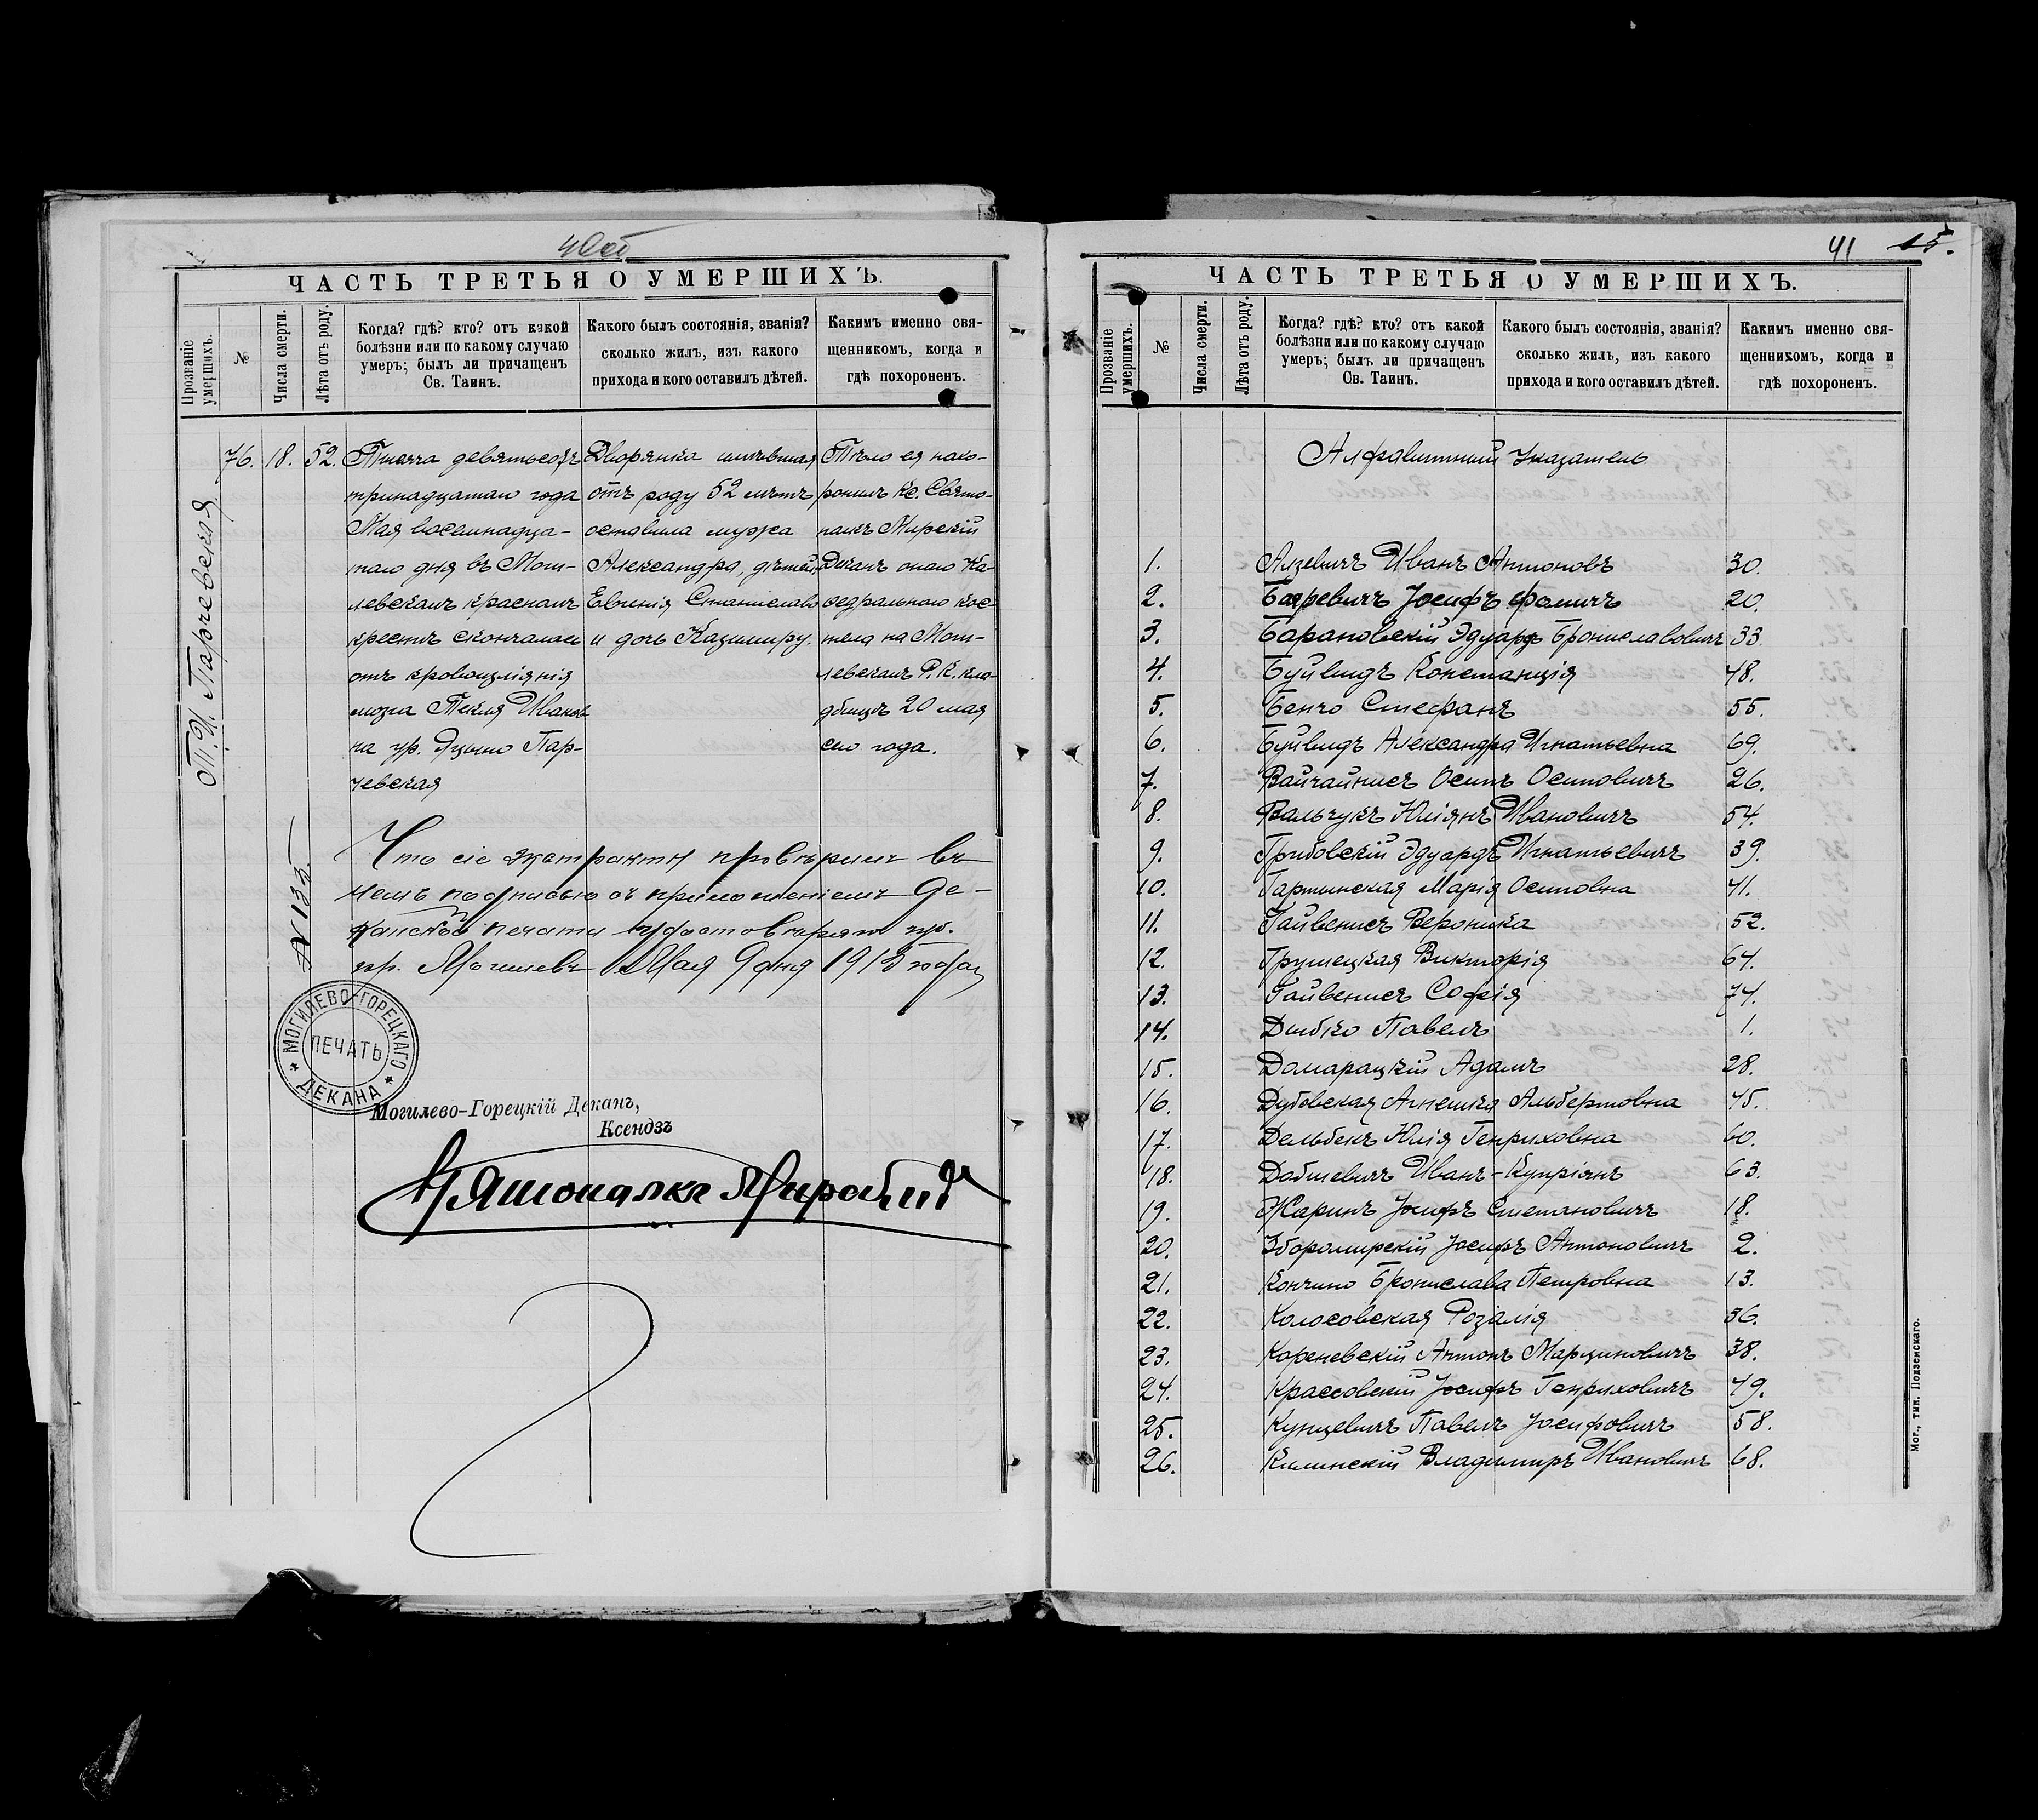 40об
ЧАСТЬ ТРЕТЬЯ О УМЕРШИХЪ.
Прозваніе умершихъ.
№
Числа смерти.
Лѣта отъ роду.
Когда? гдѣ? кто? отъ какой
болѣзни или по какому случаю
умеръ; былъ ли причащенъ
Св. Таинъ.
Какого былъ состоянія, званія?
сколько жилъ, изъ какого
прихода и кого оставилъ дѣтей.
Каким именно свя-
щенникомъ, когда и
гдѣ похороненъ.
Т. И. Парчевская
76.
18.
52.
Тысяча девятьсотъ
тринадцатаго года
Мая восемнадца-
таго дня въ Моги-
левскомъ красномъ
крестѣ скончалась
отъ кровоизліянія
мозга Текля Иванов
на ур. Яцыно Пар-
чевская
Дворянка имѣвшая
отъ роду 52 лѣтъ
оставила мужа
Александра, дѣтей
Евгенія Станислава
и дочь Казимиру.
Тѣло ея похо-
ронилъ Кс. Свято-
полкъ Мирскій
Деканъ онаго Ка-
ѳедральнаго кос-
тела на Моги-
левскомъ Р. К. кла-
дбищѣ 20 мая
сего года.
№ 133.
Что сіе экстрактъ провѣренъ въ
чемъ подписью съ приложеніемъ Де-
канской печати удостовѣряю
гор. Могилевъ Мая 9 дня 1913 года
МОГИЛЕВО-ГОРЕЦКАГО
ПЕЧАТЬ
* ДЕКАНА *
Могилево-Горецкій Деканъ,
Ксендзъ
Мирскій
41 15.
ЧАСТЬ ТРЕТЬЯ О УМЕРШИХЪ.
Прозваніе умершихъ.
№
Числа смерти.
Лѣта отъ роду.
Когда? гдѣ? кто? отъ какой
болѣзни или по какому случаю
умеръ; былъ ли причащенъ
Св. Таинъ.
Какого былъ состоянія, званія?
сколько жилъ, изъ какого
прихода и кого оставилъ дѣтей.
Каким именно свя-
щенникомъ, когда и
гдѣ похороненъ.
Алфавитный Указатель
1. Алзевичъ Иванъ Антоновъ 30.
2. Багревичъ Іосифъ Фомичъ 20.
3. Барановскій Эдуардъ Брониславовичъ 33
4. Буйвидъ Констанція 48.
5. Бенчо Стефанъ 55.
6. Буйвидъ Александра Игнатьевна 69.
7. Вайчайнисъ Осипъ Осиповичъ 26.
8. Вальчукъ Юліянъ Ивановичъ 54.
9. Грибовскій Эдуардъ Игнатьевичъ 39.
10. Гартынская Марія Осиповна 41.
11. Гайвенисъ Вероника 52.
12. Грушецкая Викторія 64.
13. Гайвенисъ Софія 74.
14. Дибко Павелъ 1.
15. Домарацкій Адамъ 28.
16. Дубовская Агнешка Альбертовна 45.
17. Дельбекъ Юлія Генриховна 60.
18. Добшевичъ Иванъ-Купріянъ 63.
19. Жаринъ Іосифъ Степановичъ 18.
20. Зборомирскій Іосифъ Антоновичъ 2.
21. Кончино Бронислава Петровна 13.
22. Колосовская Розалія 36.
23. Кореневскій Антонъ Марциновичъ 38.
24. Крассовскій Іосифъ Генриховичъ 49.
25. Кунцевичъ Павелъ Іосифовичъ 58.
26. Килинскій Владимиръ Ивановичъ 68.
Мог., тип. Подземскаго.